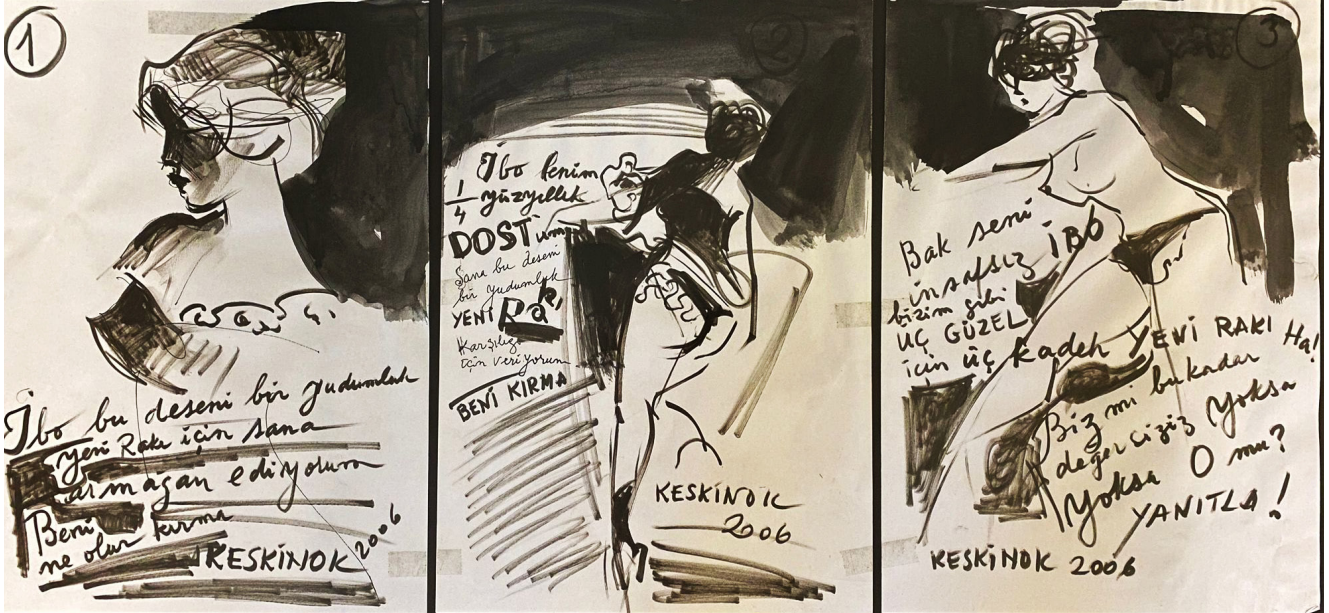 1
İbo bu deseni bir yudumluk
yeni Rakı için sana
armağan ediyorum
Beni
ne olur kırma
KESKİNOK 2006
2
İbo benim
1/4 yüzyıllık
DOSTum
Sana bu deseni
bir yudumluk
YENİ Rakı
Karşılığı
için veriyorum
BENİ KIRMA
KESKİNOK
2006
3
Bak seni
insafsız İBO
bizim gibi
ÜÇ GÜZEL
için üç kadeh YENİ RAKI Ha!
Biz mi bu kadar
değersiziz Yoksa
Yoksa O mu?
YANITLA!
KESKİNOK 2006